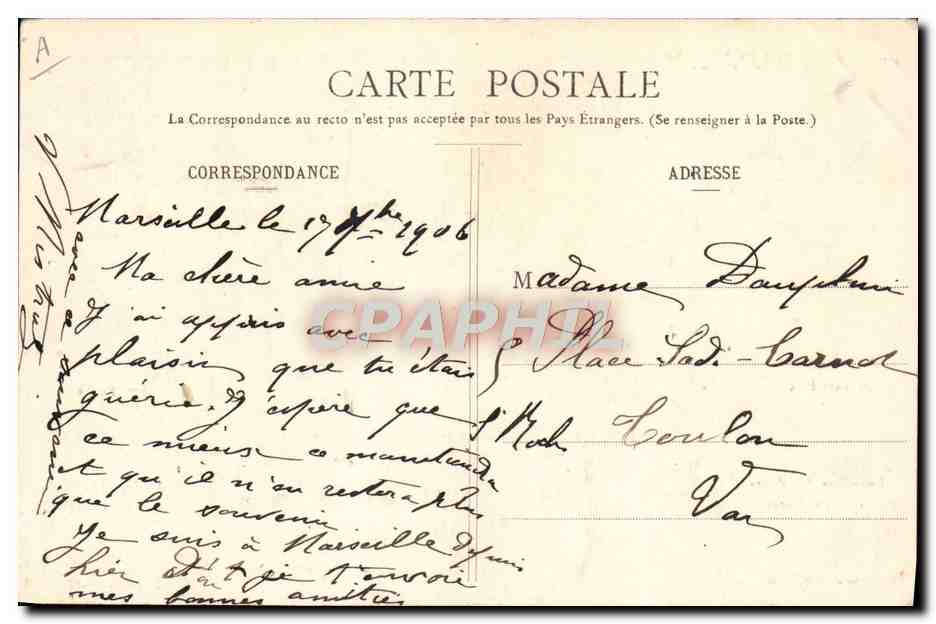 A
CARTE POSTALE
La Correspondance au recto n'est pas acceptée par tous les Pays Étrangers. (Se renseigner à la Poste.)
CORRESPONDANCE
Marseille le 17 7bre 1906
Ma chère amie
J'ai appris avec
plaisir que tu étais
guérie. J'espère que
ce mieux se maintiendra
et qu'il n'en restera plus
que le souvenir
Je suis à Marseille depuis
hier d'où je t'envoie
mes bonnes amitiés
avec ce
ADRESSE
Madame Dauphin
5 Place Sadi-Carnot
St Roch Toulon
Var
CPAPHIL